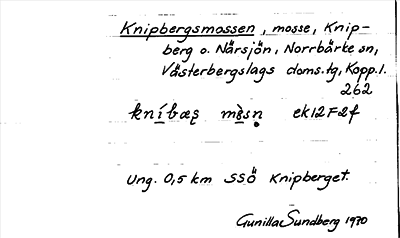 Knipbergsmossen, mosse, Knip-
berg o. Närsjön, Norrbärke sn,
Västerbergslags doms.tg, Kopp.l.
262
ek12F2f
Ung. 0,5 km SSÖ Knipberget.
Gunilla Sundberg 1970